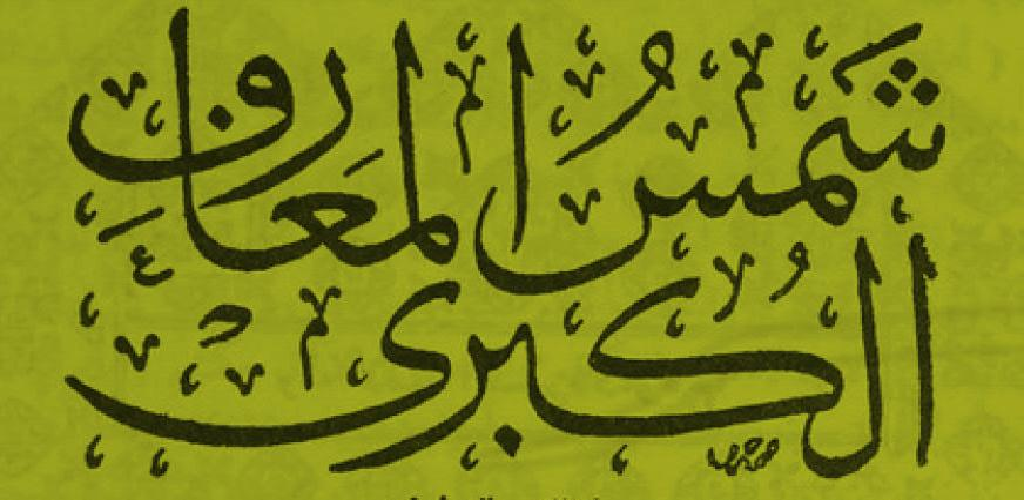 شَمْسُ المَعَارِفِ
الكُبْرى